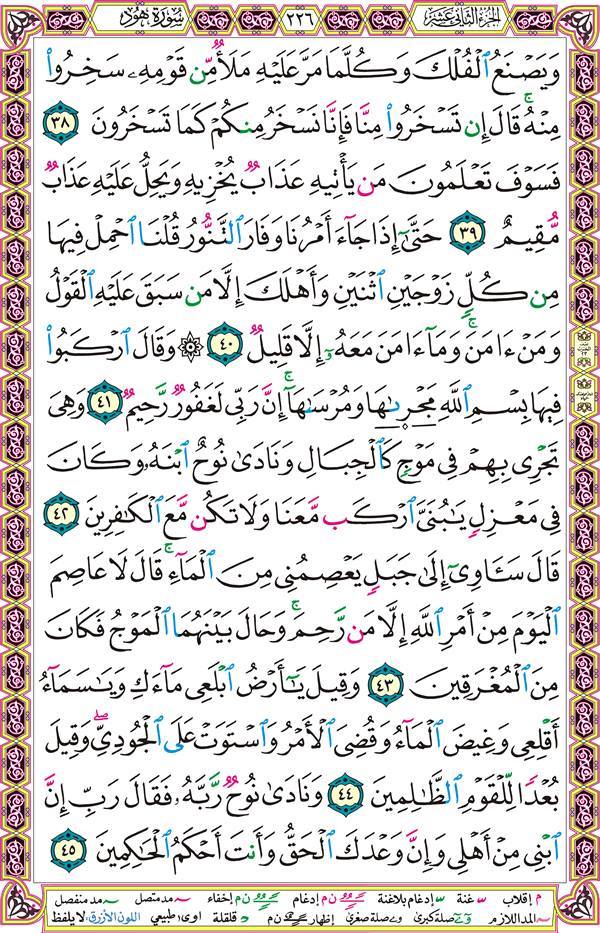 الجزء الثاني عشر ٢٢٦ سورة هود
وَيَصْنَعُ ٱلْفُلْكَ وَكُلَّمَا مَرَّ عَلَيْهِ مَلَأٌ مِّن قَوْمِهِۦ سَخِرُوا۟
مِنْهُ ۚ قَالَ إِن تَسْخَرُوا۟ مِنَّا فَإِنَّا نَسْخَرُ مِنكُمْ كَمَا تَسْخَرُونَ ٣٨
فَسَوْفَ تَعْلَمُونَ مَن يَأْتِيهِ عَذَابٌ يُخْزِيهِ وَيَحِلُّ عَلَيْهِ عَذَابٌ
مُّقِيمٌ ٣٩ حَتَّىٰٓ إِذَا جَآءَ أَمْرُنَا وَفَارَ ٱلتَّنُّورُ قُلْنَا ٱحْمِلْ فِيهَا
مِن كُلٍّ زَوْجَيْنِ ٱثْنَيْنِ وَأَهْلَكَ إِلَّا مَن سَبَقَ عَلَيْهِ ٱلْقَوْلُ
وَمَنْ ءَامَنَ ۚ وَمَآ ءَامَنَ مَعَهُۥٓ إِلَّا قَلِيلٌ ٤٠ ۞ وَقَالَ ٱرْكَبُوا۟
فِيهَا بِسْمِ ٱللَّهِ مَجْر۪ىٰهَا وَمُرْسَىٰهَآ ۚ إِنَّ رَبِّى لَغَفُورٌ رَّحِيمٌ ٤١ وَهِىَ
تَجْرِى بِهِمْ فِى مَوْجٍ كَٱلْجِبَالِ وَنَادَىٰ نُوحٌ ٱبْنَهُۥ وَكَانَ
فِى مَعْزِلٍ يَٰبُنَىَّ ٱرْكَب مَّعَنَا وَلَا تَكُن مَّعَ ٱلْكَٰفِرِينَ ٤٢
قَالَ سَـَٔاوِىٓ إِلَىٰ جَبَلٍ يَعْصِمُنِى مِنَ ٱلْمَآءِ ۚ قَالَ لَا عَاصِمَ
ٱلْيَوْمَ مِنْ أَمْرِ ٱللَّهِ إِلَّا مَن رَّحِمَ ۚ وَحَالَ بَيْنَهُمَا ٱلْمَوْجُ فَكَانَ
مِنَ ٱلْمُغْرَقِينَ ٤٣ وَقِيلَ يَٰٓأَرْضُ ٱبْلَعِى مَآءَكِ وَيَٰسَمَآءُ
أَقْلِعِى وَغِيضَ ٱلْمَآءُ وَقُضِىَ ٱلْأَمْرُ وَٱسْتَوَتْ عَلَى ٱلْجُودِىِّ ۖ وَقِيلَ
بُعْدًا لِّلْقَوْمِ ٱلظَّٰلِمِينَ ٤٤ وَنَادَىٰ نُوحٌ رَّبَّهُۥ فَقَالَ رَبِّ إِنَّ
ٱبْنِى مِنْ أَهْلِى وَإِنَّ وَعْدَكَ ٱلْحَقُّ وَأَنتَ أَحْكَمُ ٱلْحَٰكِمِينَ ٤٥
م إقلاب غنة إدغام بلاغنة ن م إدغام إخفاء مد متصل مد منفصل
المد اللازم صلة كبرى صلة صغرى إظهار ن م قلقلة اوى طبيعي اللون الأزرق لا يلفظ